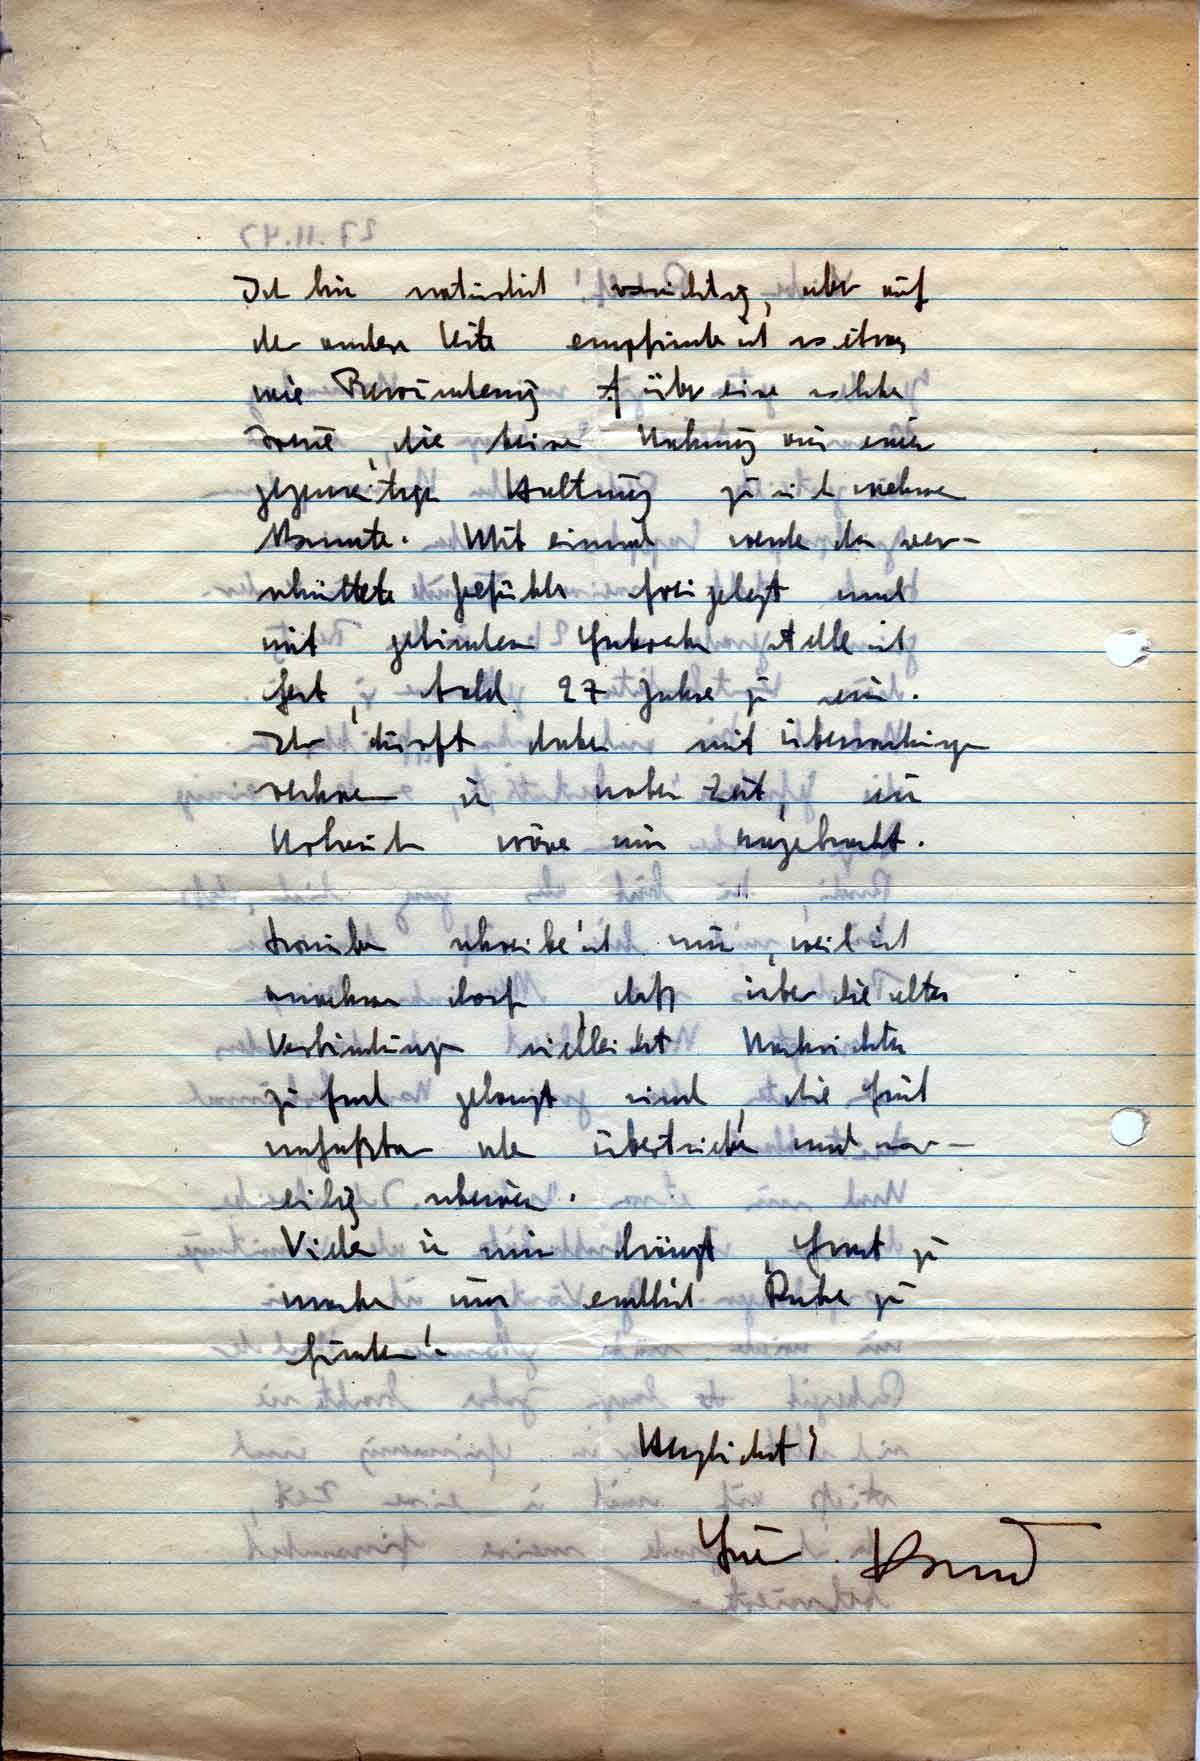 Ich bin natürlich vorsichtig, aber auf
der andern Seite empfinde ich so etwas
wie Bewunderung über eine solche
die keine Nahrung von einer
gegenwärtigen Haltung zu sich nehmen
konnte. Mit einmal werden da ver-
schüttete Gefühle freigelegt und
mit gelindem Schrecken stelle ich
fest, bald 27 Jahre zu sein.
Ihr dürft daher mit Überraschungen
rechnen in naher Zeit,
wäre nun angebracht.
Darüber schreibe ich nur, weil ich
annehmen darf, daß über die alten
Verbindungen vielleicht Nachrichten
zu Euch gelangt sind, die Euch
unfaßbar oder übertrieben und vor-
eilig scheinen.
Vieles in mir drängt, Ernst zu
machen um endlich Ruhe zu
finden!
Herzlichst!
Euer